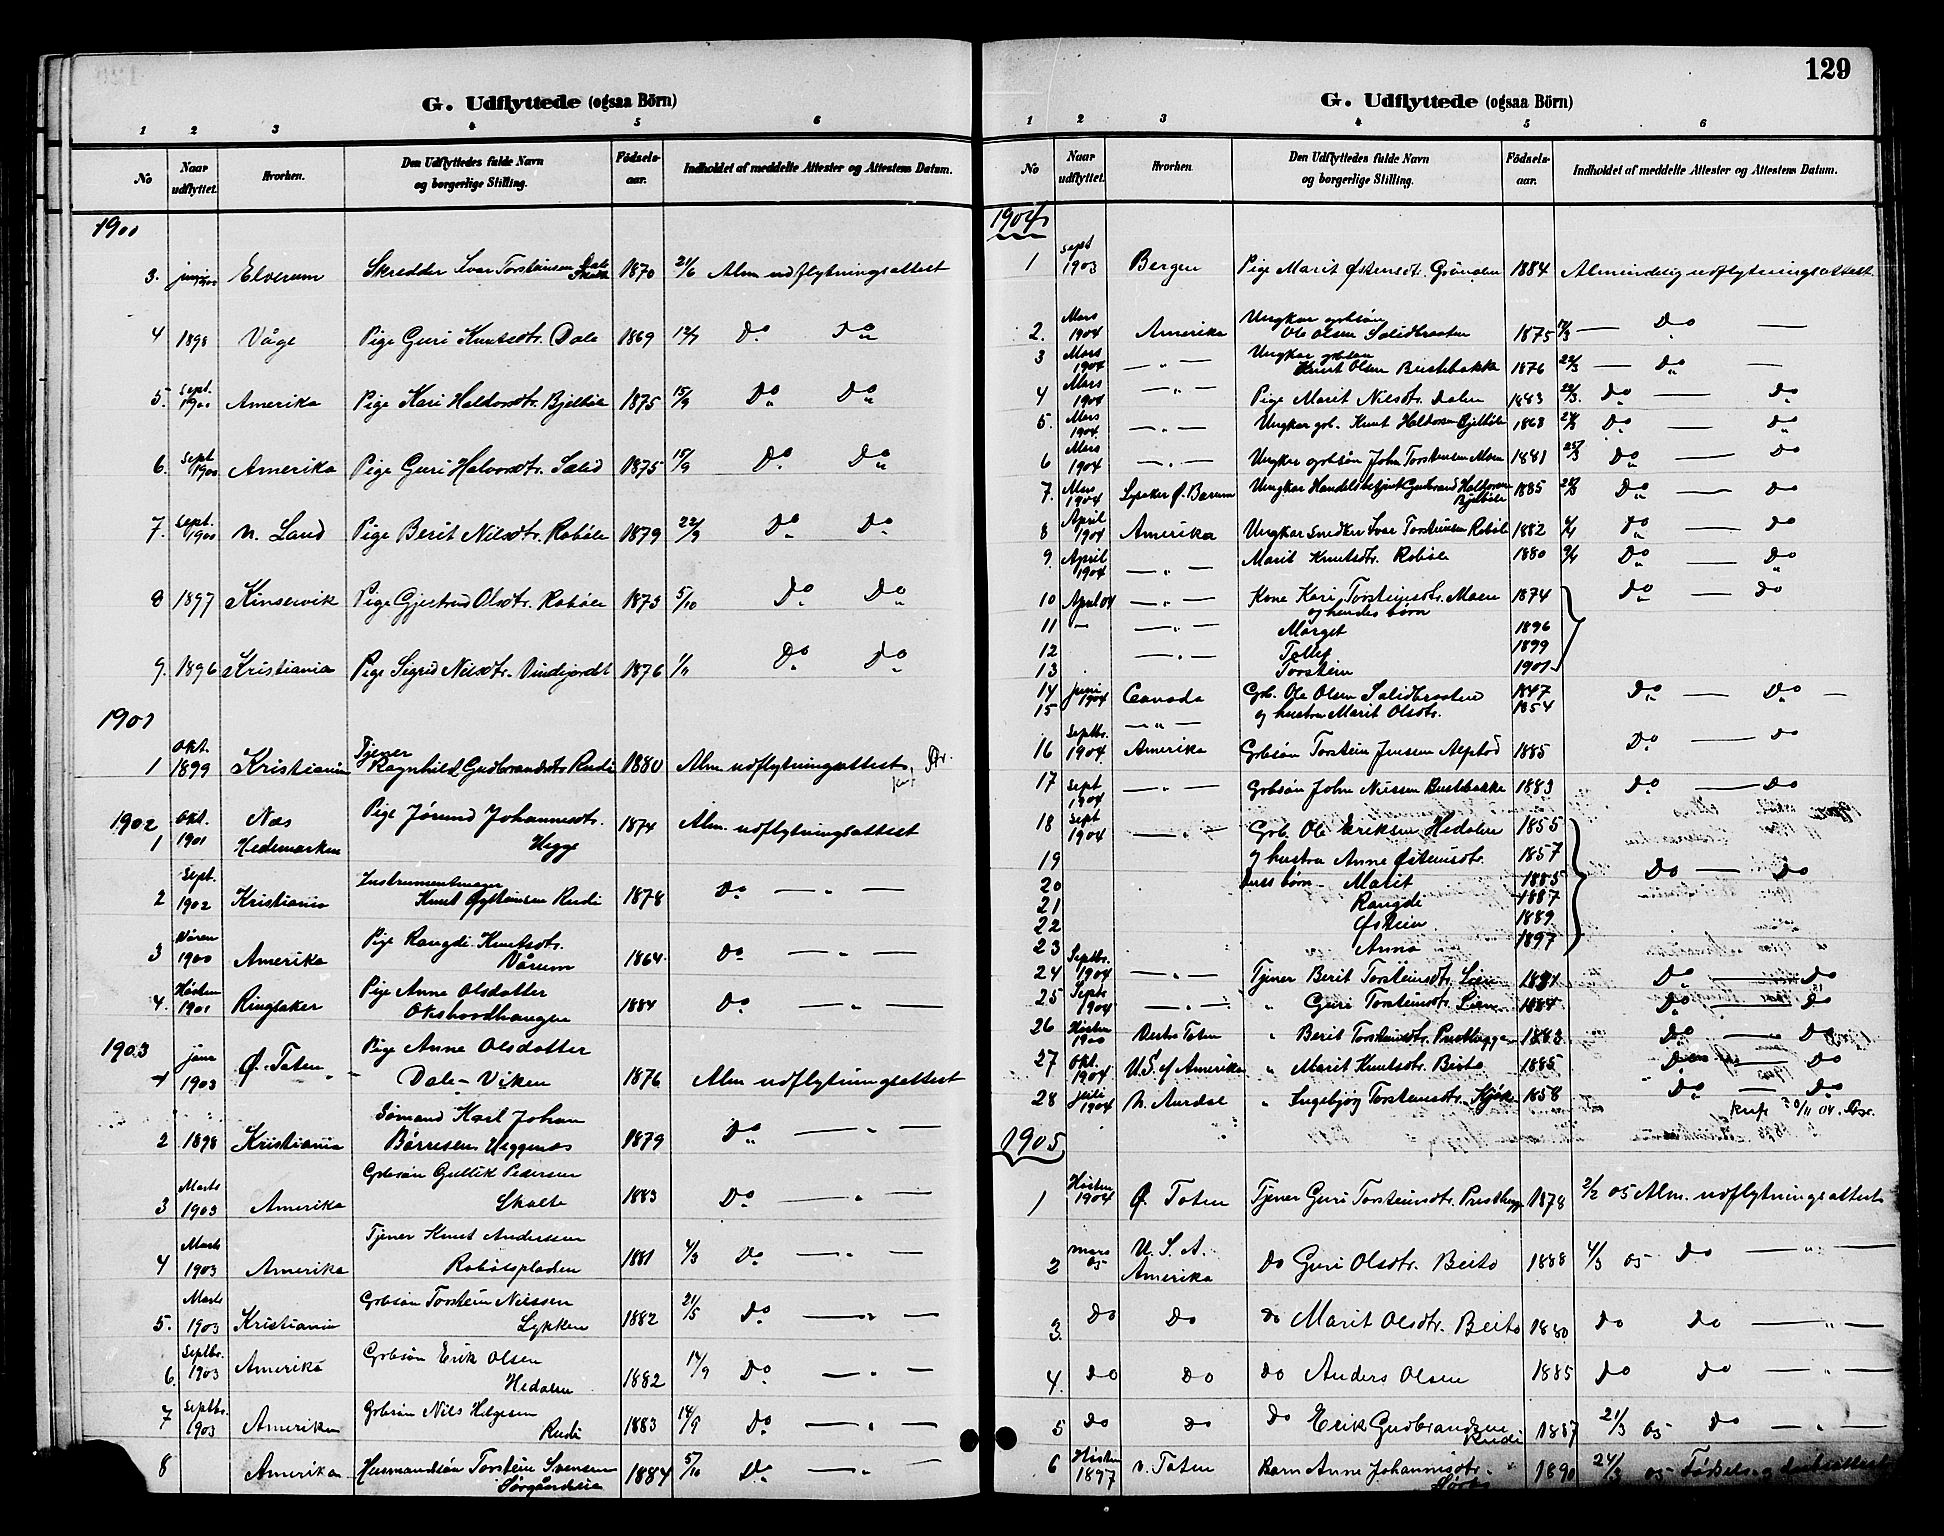 G. Udflyttede (ogsaa Börn)
1 2 3 4 5 6
No Naar udflyttet. Hvorhen. Den Udflyttedes fulde Navn og borgerlige Stilling. Fødselsaar. Indholdet af meddelte Attester og Attestens Datum.
1900
3. Elverum Skredder Ivar Torsteinsen Dale 1870 21/6 Alm udflytningsattest
4 1898 Våge Pige Guri Knutsdtr. Dale 1869 12/7 Do Do
5. Sept. 1900 Amerika Pige Kari Haldorsdtr. Bjelbøle 1875 15/9 Do Do
6. Sept 1900 Amerika Pige Guri Halvorsdtr. Sælid 1875 15/9 Do Do
7. Sept. 1900 N. Land Pige Berit Nilsdtr. Robøle 1879 22/9 Do Do
8 1897 Kinservik Pige Gjertrud Olsdtr. Robøle 1873 5/10 Do Do
9. 1896 Kristiania Pige Sigrid Nilsdtr. Vindejordet 1876 1/11 Do Do
1901
1 Okt. 1899 Kristiania Tjener Ragnhild Gudbrandsdtr. Rudi 1880 Alm udflytningsattest
1902
1 Okt. 1901 Næs Hedemarken Pige Jørund Johannesdtr. Hegge 1874 Alm. udflytningsattest
2 Sept. 1902 Kristiania Instrumentmager Knut Øysteinsen Rudi 1878 Do — " —
3 Våren 1900 Amerika Pige Rangdi Knutsdtr. Vårum 1864 Do — " —
4. Høsten 1901 Ringsaker Pige Anne Olsdatter Okshovdhaugen 1884 Do — " —
1903
1 janr 1903 Ø. Toten Pige Anne Olsdatter Dale-Viken 1876 Alm udflytningsattest
2 1898 Kristiania Sømand Karl Johan Børresen Heggenæs 1879 Do — " —
3 Marts 1903 Amerika Grbsøn Gullik Pedersen Skalte 1883 Do — " —
4 Marts 1903 Amerika Tjener Knut Anderssen Robølspladsen 1881 4/3 Do — " —
5. Marts 1903 Kristiania Grbsøn Torstein Nilssen Lykken 1882 21/5 Do — " —
6. Septbr. 1903 Amerika Grbsøn Erik Olsen Hedalen 1882 14/9 Do — " —
7 Septbr. 1903 Amerika Grbsøn Nils Helgesen Rudi 1883 14/9 Do — " —
8 Amerika Husmandssøn Torstein Svensen 1884 5/10 Do — " —
129
G. Udflyttede (ogsaa Börn)
1 2 3 4 5 6
No Naar udflyttet. Hvorhen. Den Udflyttedes fulde Navn og borgerlige Stilling. Fødselsaar. Indholdet af meddelte Attester og Attestens Datum.
1904
1 Sept 1903 Bergen Pige Marit Østensdtr. Grønolen 1884 Almindelig udflytningsattest
2. Mars 1904 Amerika Ungkar grbsøn Ole Olsen Sælidbraaten 1875 — Do —
3 Mars 1904 — " — Ungkar grbsøn Knut Olsen Beitebakke 1876 22/3 — Do —
4 Mars 1904 — " — Pige Marit Nilsdtr. Dalen 1883 22/3. Do — Do
5. Mars 1904. — " — Ungkar grb. Knut Haldorsen Bjelbøle 1868 Do — Do
6 Mars 1904 — " — Ungkar grbsøn John Torsteinsen Moen 1881 25/3 Do — Do
7. Mars 1904 Lysaker Ø. Bærum Ungkar Handelsbetjent Gudbrand Haldorsen Bjelbøle 1885 Do — Do
8 April 1904 Amerika Ungkar snedker Ivar Torsteinsen Robøle 1882 Do — Do
9. April 1904 — " — Marit Knutsdtr. Robøle 1880 Do — Do
10 April 04 — " — Kone Kari Torsteinsdtr. Moen 1874 Do — Do
og hendes børn
11 — — " — Marget 1896
12 — " — Tollef 1899
13 Torstein 1901
14 juni 1904 Canada Grb. Ole Olsen Sælidbraaten 1847 Do — Do —
15 — " — og hustru Marit Olsdtr. 1854
16 Septbr. 1904 Amerika Grbsøn Torstein Jensen Alstad 1885 Do — Do
17 Sept 1904 — " — Grbsøn John Nilssen Beitebakke 1883 Do — Do
18 Sept 1904 — " — Grb. Ole Eriksen Hedalen 1855
19 og hustru Anne Østensdtr. 1857 Do — Do
20 deres børn Marit 1885
21 Rangdi 1887
22 Østein 1889
23 Anna 1897
24 Septbr. 1904 — " — Tjener Berit Torsteinsdtr. Lien 1881 Do — Do
25 Septr 1904 — " — " Guri Torsteinsdtr. Lien 1884 Do — Do
26 Høsten 1900 Vestre Toten " Berit Torsteinsdtr. 1883 Do — Do
27 Okt. 1904 U.S. of Amerika " Marit Knutsdtr. Beito 1885 Do — Do
28 juli 1904 N. Aurdal " Ingebjør Torsteinsdtr. Kjøk 1858 Do — Do
1905
1 Høsten 1904 Ø. Toten Tjener Guri Torsteinsdtr. 1878 2/2 05 Alm. udflytningsattest
2 mars 05 U. S. A. Amerika Do Guri Olsdtr. Beito 1888 4/3 05 Do — " —
3. Do Do Do Marit Olsdtr. Beito 1880 Do Do — " —
4. Do Do Do Anders Olsen 1885 Do Do — " —
5 Do Do Do Erik Gudbrandsen Rudi 1887 21/3 05 Do — " —
6 Høsten 1897 V. Toten Barn Anne Johannesdtr. 1890 24/3 05 Fødsels og daabsattest